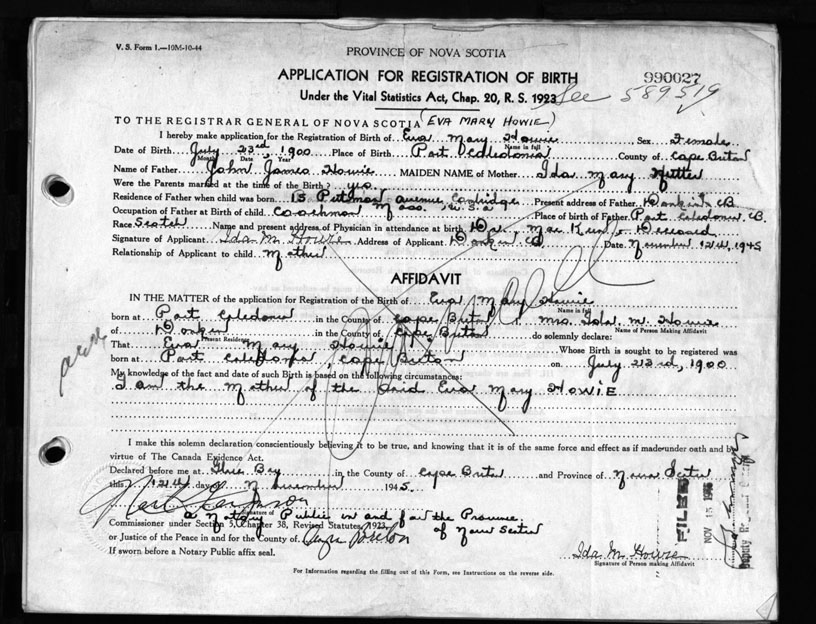 V. S. Form 1.—10M-10-44
PROVINCE OF NOVA SCOTIA
APPLICATION FOR REGISTRATION OF BIRTH 990027
Under the Vital Statistics Act, Chap. 20, R. S. 1923 See 589519
TO THE REGISTRAR GENERAL OF NOVA SCOTIA (EVA MARY HOWIE)
I hereby make application for the Registration of Birth of Eva Mary Howie Sex Female
Name in full
Date of Birth July 23rd, 1900 Place of Birth Port Caledonia County of Cape Breton
Month Date Year
Name of Father John James Howie MAIDEN NAME of Mother Ida Mary
Were the Parents married at the time of the Birth? yes
Residence of Father when child was born 15 avenue Cambridge Present address of Father Donkin CB
Mass. U.S.A
Occupation of Father at Birth of child Coachman Place of birth of Father Port Caledonia CB.
Race Scotch Name and present address of Physician in attendance at birth Dr.
Signature of Applicant Ida M. Howie Address of Applicant Donkin CB Date November 12th, 1945
Relationship of Applicant to child Mother
AFFIDAVIT
IN THE MATTER of the application for Registration of the Birth of Eva Mary Howie
Name in full
born at Port Caledonia in the County of Cape Breton I, Mrs. Ida M. Howie
Name of Person Making Affidavit
of Donkin in the County of Cape Breton do solemnly declare:
Present Residence
That Eva Mary Howie Whose Birth is sought to be registered was
born at Port Caledonia, Cape Breton on July 23rd, 1900
My knowledge of the fact and date of such Birth is based on the following circumstances:
I am the Mother of the said Eva Mary HOWIE
I make this solemn declaration conscientiously believing it to be true, and knowing that it is of the same force and effect as if made under oath and by
virtue of The Canada Evidence Act.
Declared before me at Glace Bay in the County of Cape Breton and Province of Nova Scotia
this 12th day of November 1945.
Signature of
a Notary Public in and for the Province
Commissioner under Section 5, Chapter 38, Revised Statutes, 1923, of Nova Scotia
or Justice of the Peace in and for the County of Cape Breton
If sworn before a Notary Public affix seal.
FILED
NOV 15
Ida M Howie
Signature of Person making Affidavit
For Information regarding the filling out of this Form, see Instructions on the reverse side.